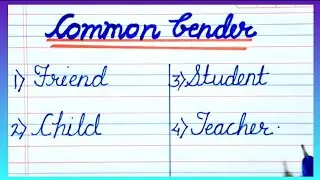 Common Gender
1) Friend
2) Child
3) Student
4) Teacher.